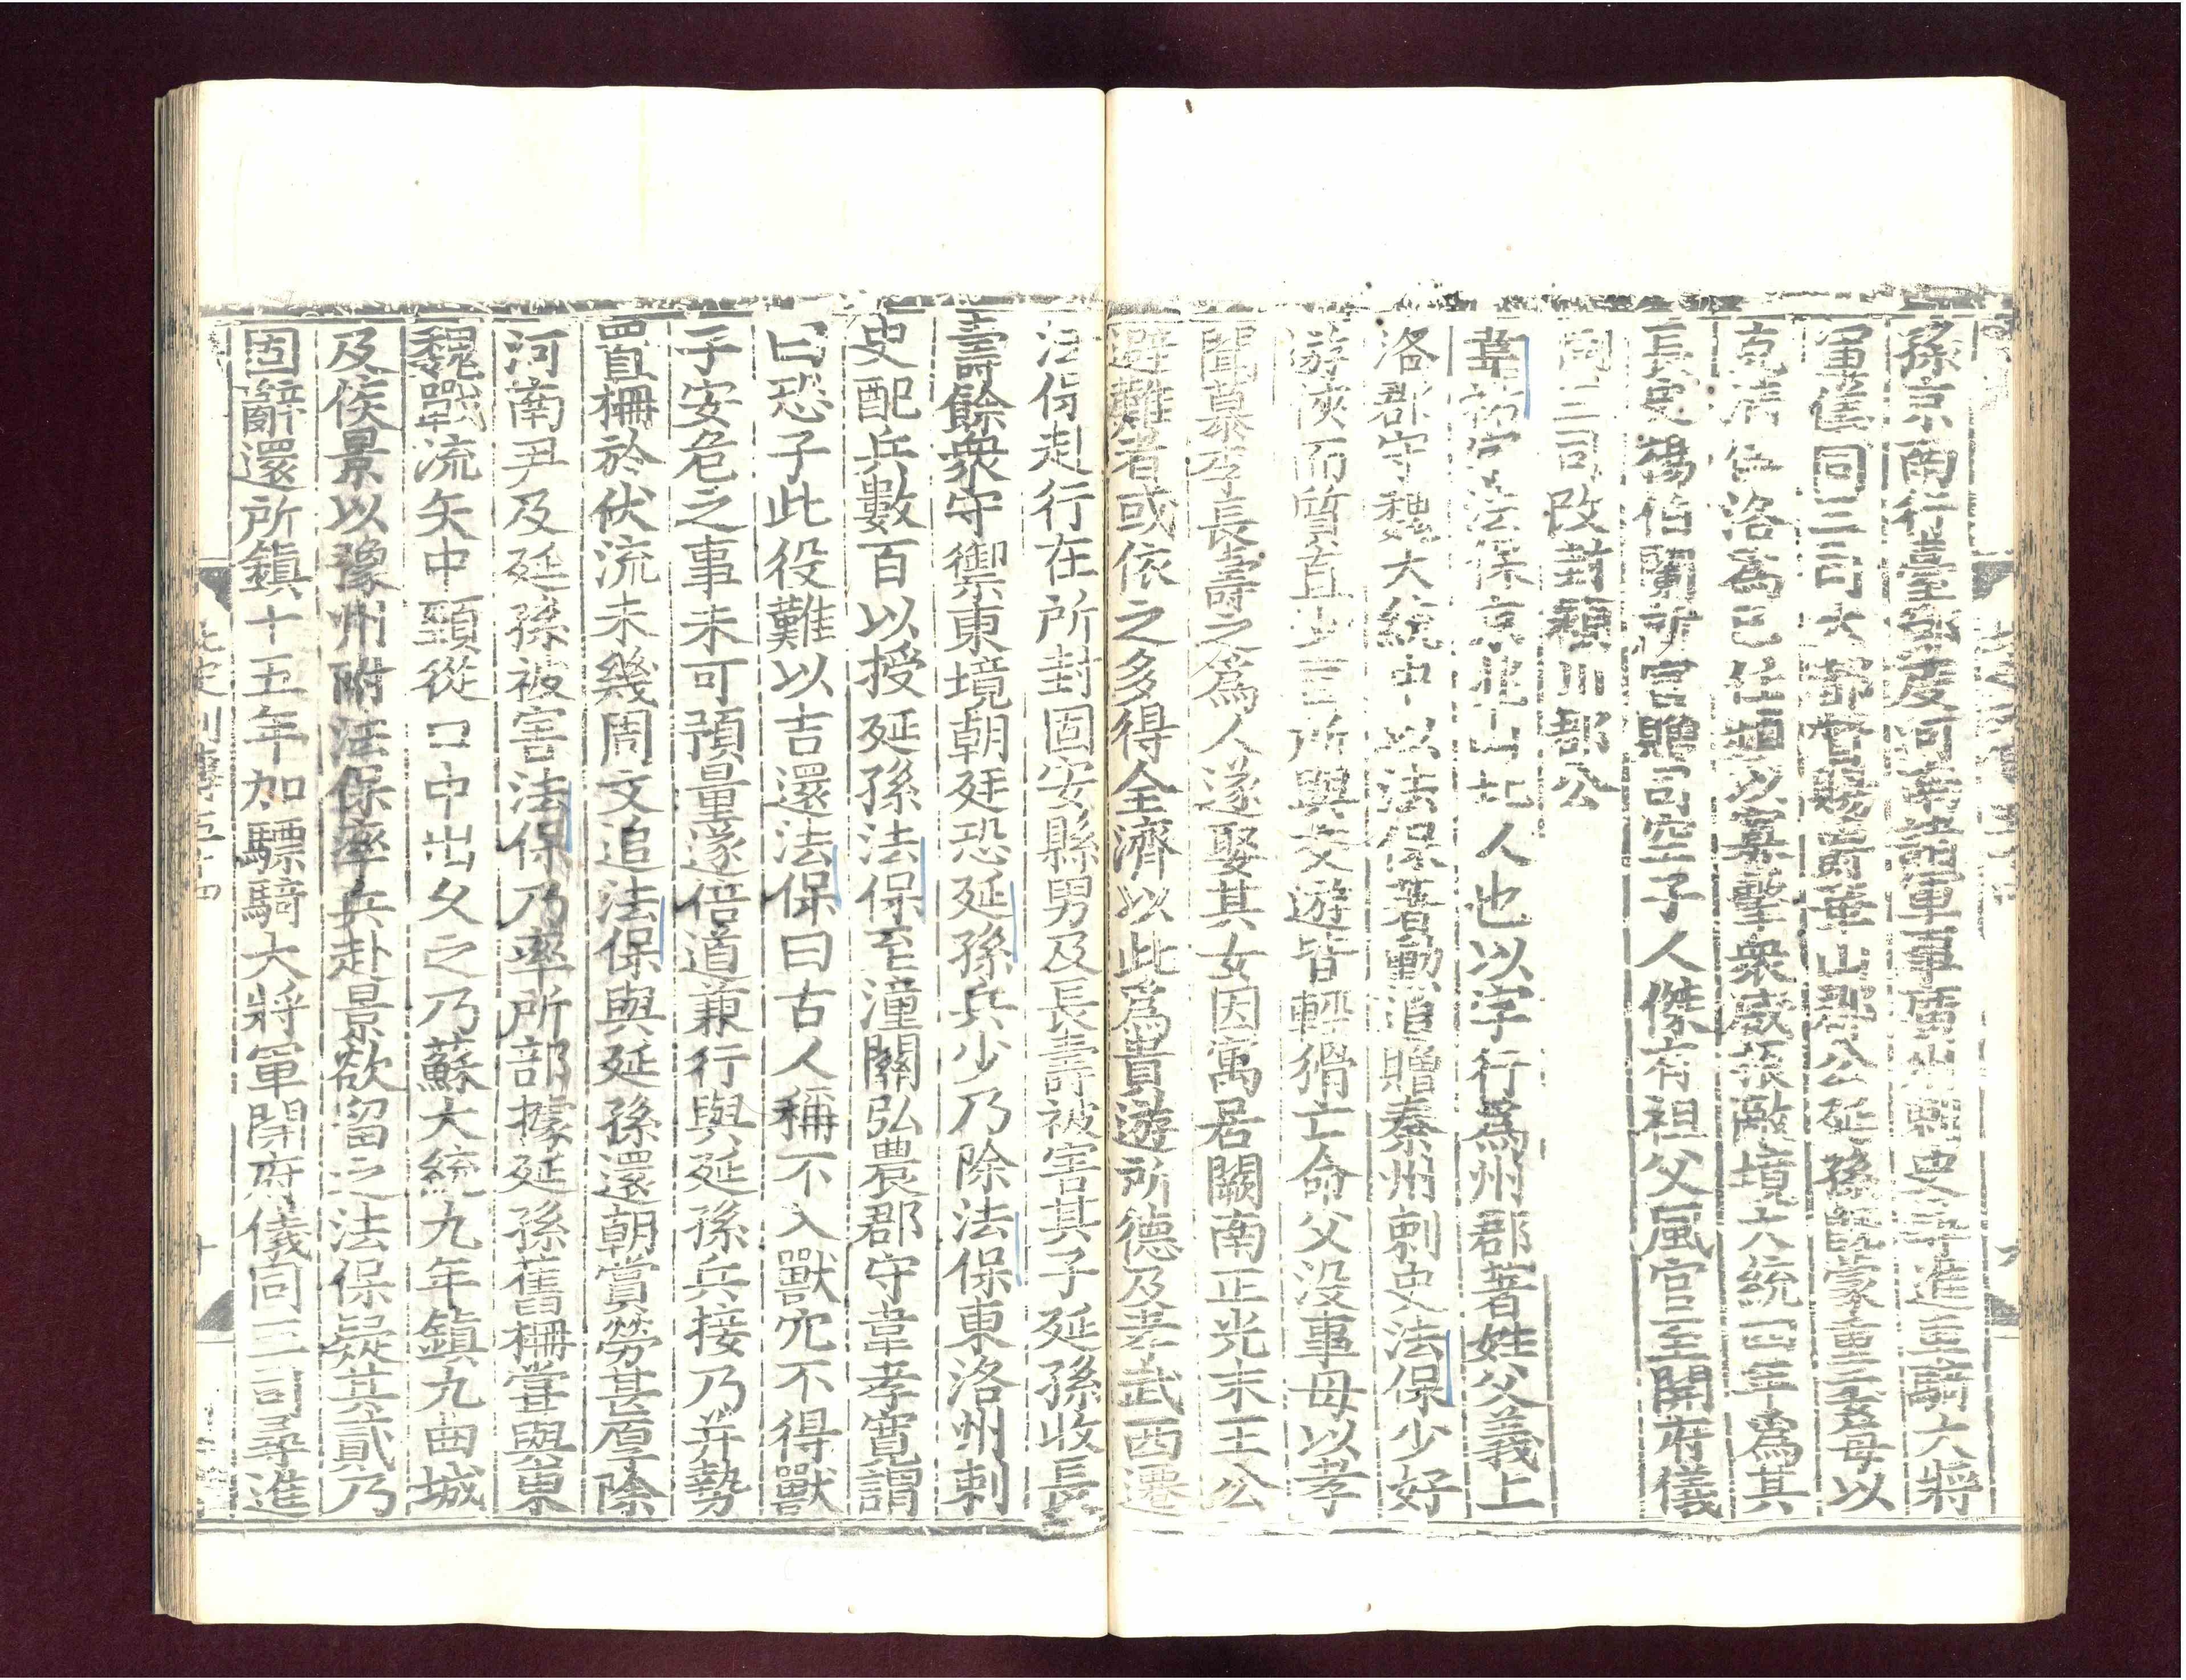 孫京南行臺節度河南諸軍事廣州刺史尋進至驃騎大將
軍儀同三司大都督賜爵華山郡公延孫旣蒙重委每以
克清伊洛爲己任頻以寡擊衆威振敵境大統四年爲其
長史楊伯蘭所害贈司空子人傑有祖父風官至開府儀
同三司改封潁川郡公
韋祐字法保京兆山北人也以字行爲州郡著姓父義上
洛郡守魏大統中以法保著勳追贈秦州刺史法保少好
游俠而質直少言所與交遊皆輕猾亡命父没事母以孝
聞慕李長壽之爲人遂娶其女因寓居關南正光末王公
避難者或依之多得全濟以此爲貴遊所德及孝武西遷
法保赴行在所封固安縣男及長壽被害其子延孫收長
壽餘衆守禦東境朝廷恐延孫兵少乃除法保東洛州刺
史配兵數百以授延孫法保至潼關弘農郡守韋孝寬謂
曰恐子此役難以吉還法保曰古人稱不入獸穴不得獸
子安危之事未可預量遂倍道兼行與延孫兵接乃并勢
置柵於伏流未幾周文追法保與延孫還朝賞勞甚厚除
河南尹及延孫被害法保乃率所部據延孫舊柵嘗與東
魏戰流矢中頸從口中出久之乃蘇大統九年鎮九曲城
及侯景以豫州附法保率兵赴景欲留之法保疑其貳乃
固辭還所鎮十五年加驃騎大將軍開府儀同三司尋進
北史列傳五十四
十